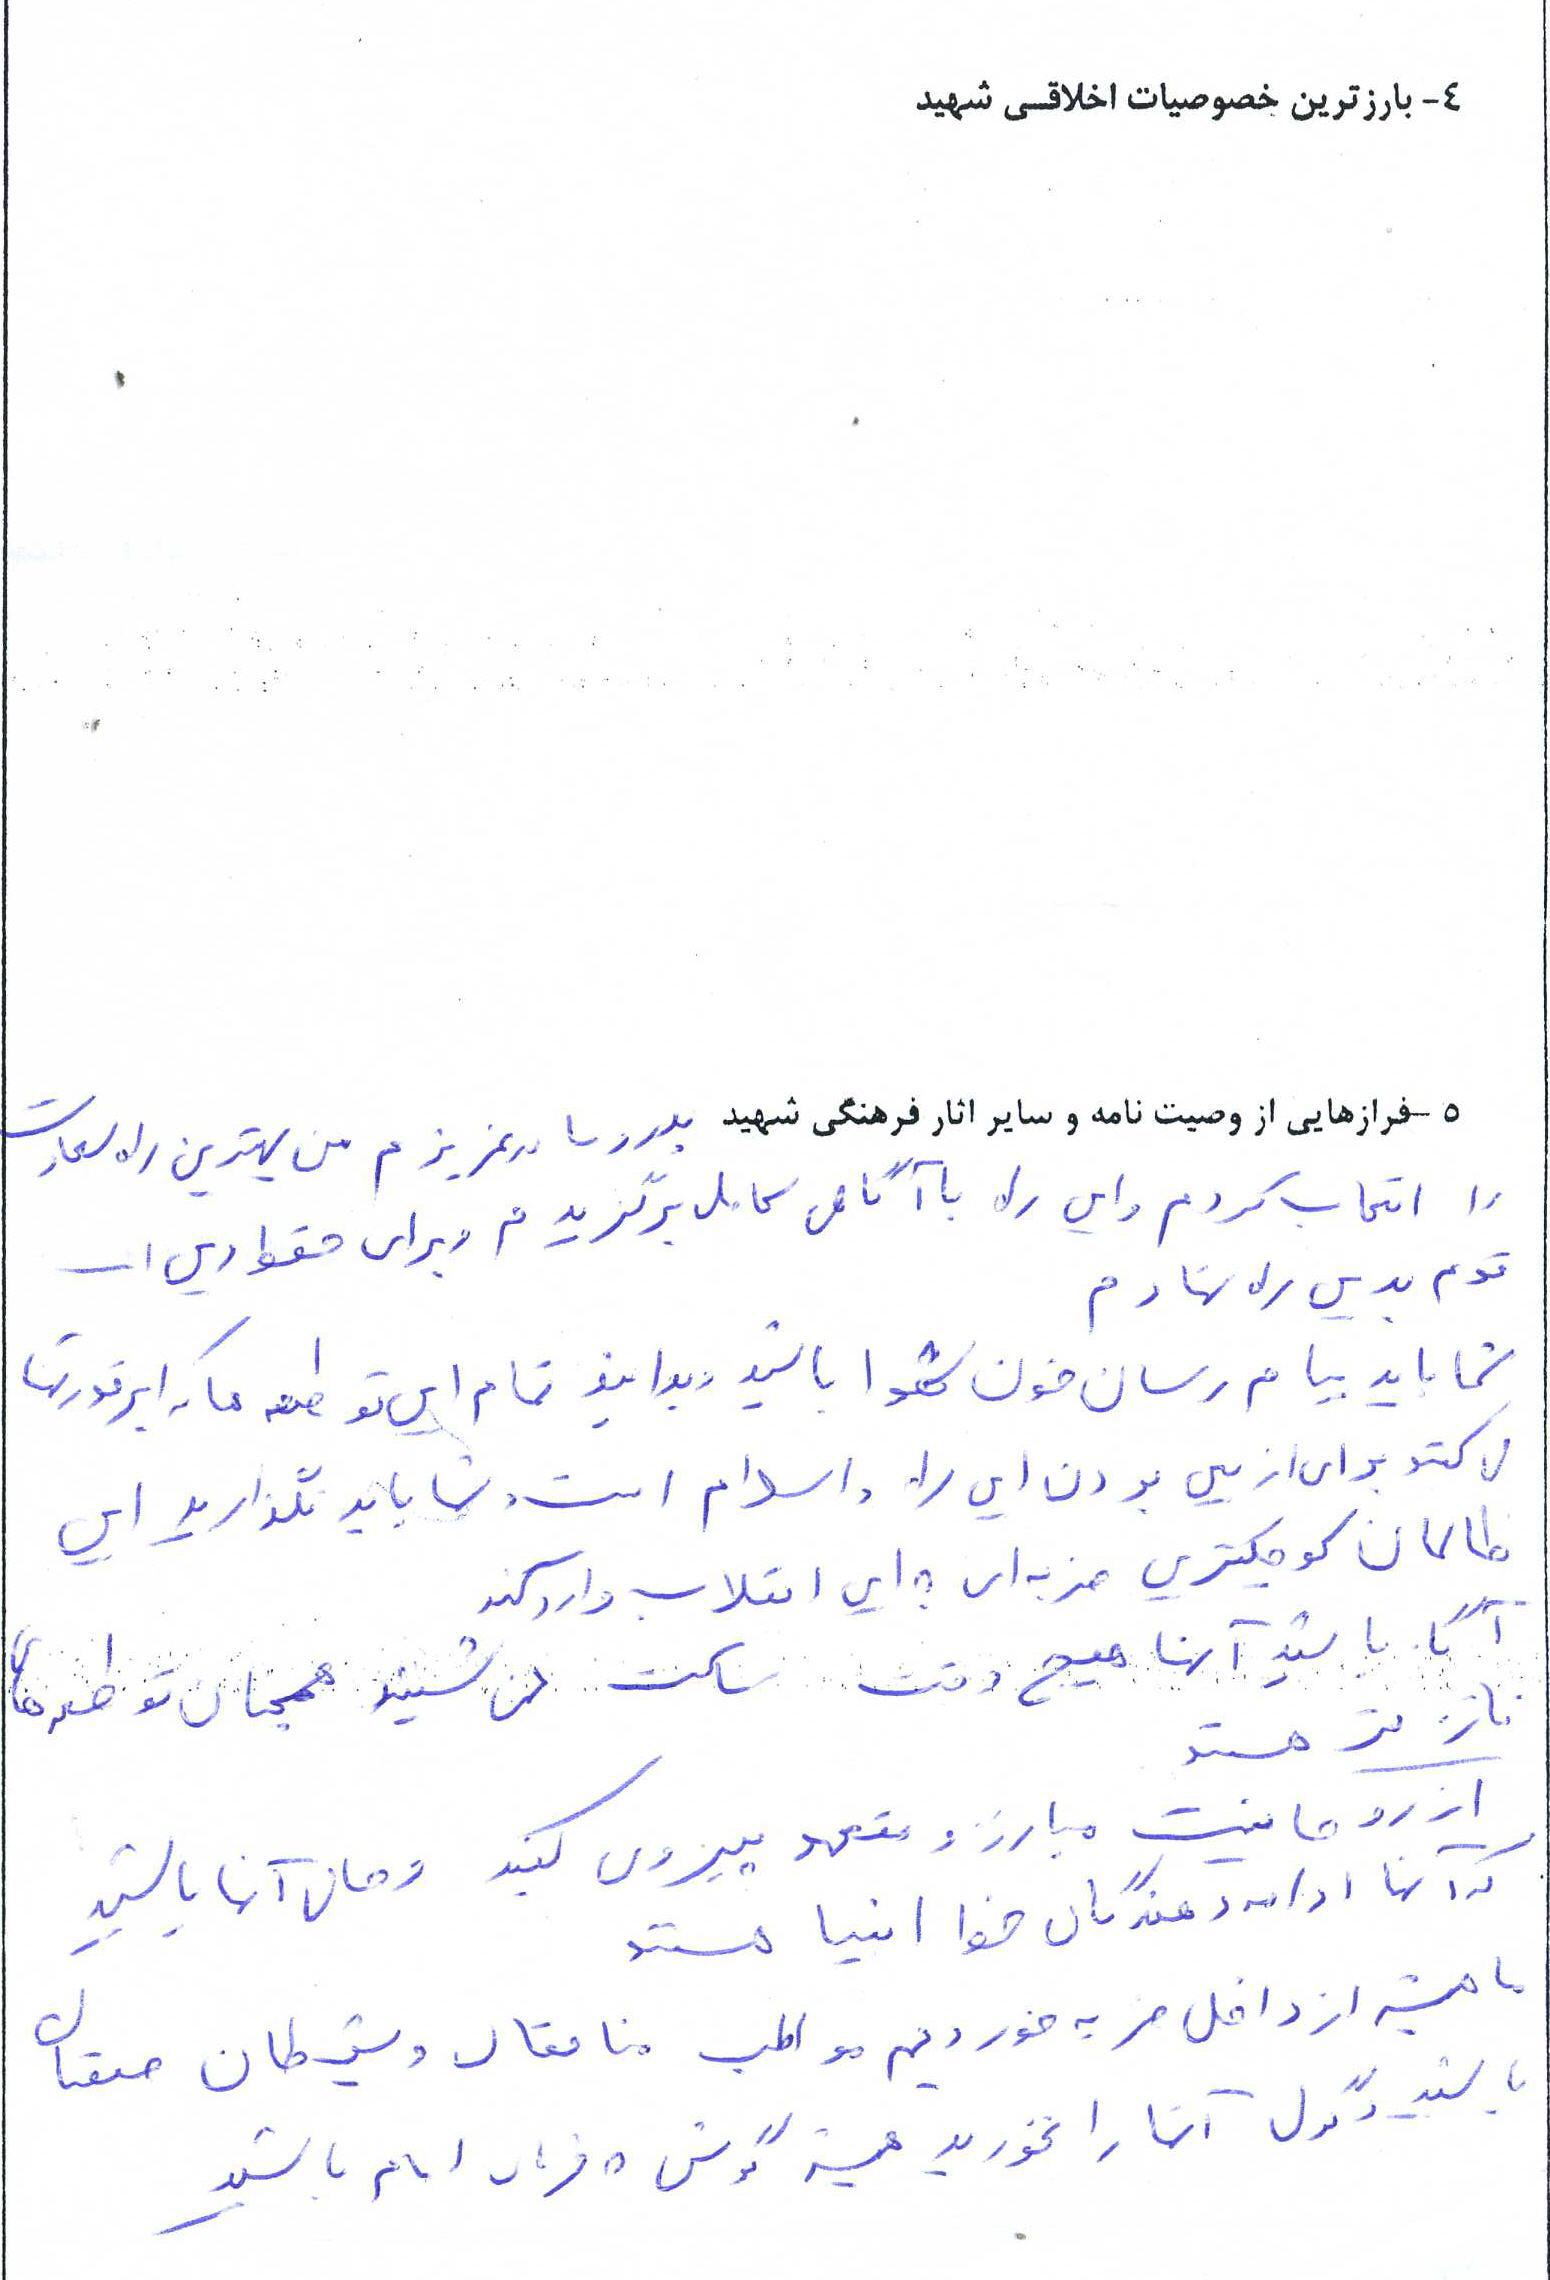 ٤- بارزترین خصوصیات اخلاقی شهید
٥- فرازهایی از وصیت نامه و سایر اثار فرهنگی شهید پدر و مادر عزیزم من بهترین راه سعادت
را انتخاب کردم و این راه با آگاهی کامل برگزیدم و برای حفظ دین است
قدم بدین راه نهادم
شما باید پیام رسان خون شهدا باشید و بدانید تمام این توطعه ها که ابرقدرتها
می کنند برای از بین بردن این راه و اسلام است شما باید نگذارید این
ظالمان کوچکترین ضربه ای به این انقلاب وارد کند
آگاه باشید آنها هیچ وقت ساکت نمی نشینند همچنان توطعه های
تازه تر هستند
از روحانیت مبارز و متعهد پیروی کنید و حامی آنها باشید
که آنها ادامه دهندگان انبیا هستند
ما همیشه از داخل ضربه خوردیم مواظب منافقان و شیطان صفتان
باشید و گول آنها را نخورید همیشه گوش به فرمان امام باشید